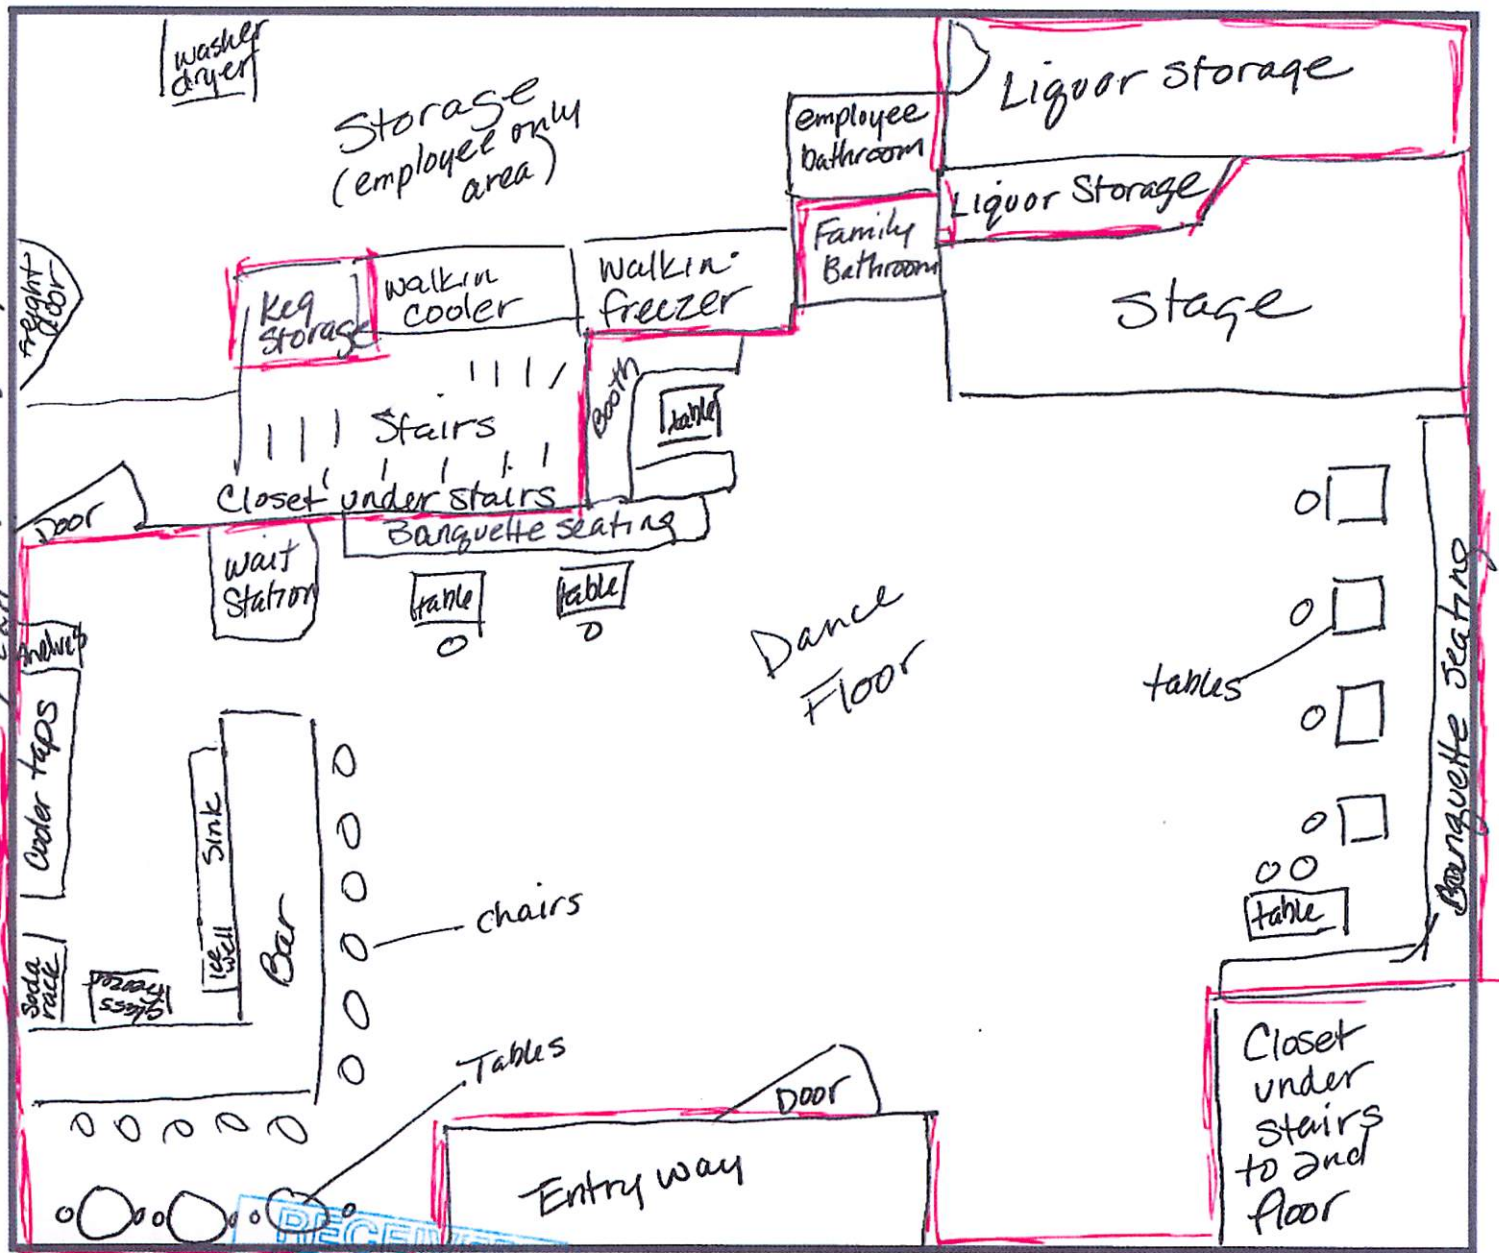 washer
dryer
Storage
(employee only
area)
employee
bathroom
Liquor Storage
Liquor Storage
Family
Bathroom
Stage
freight
door
Keg
Storage
Walkin
cooler
Walkin
freezer
Booth
table
Stairs
Closet under stairs
Door
Banquette seating
wait
Station
table
table
Dance
Floor
tables
Banquette seating
Cooler taps
Sink
Ice
well
Bar
Soda
rack
chairs
table
Tables
Door
Entry way
Closet
under
stairs
to 2nd
floor
RECEIVE